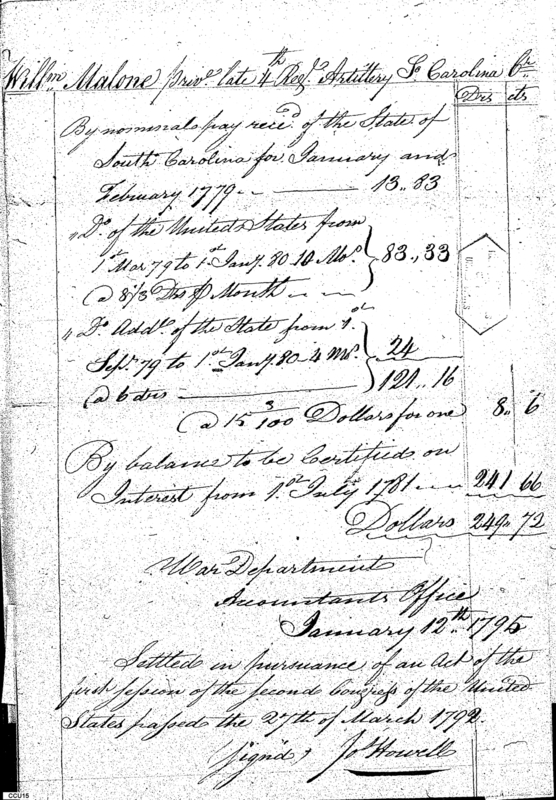 Willm Malone privt late 4th Regt Artillery So Carolina Cr
Drs cts
By nominal pay recied of the State of
South Carolina for January and
February 1779 - - 13.. 83
" Do of the United States from
1st Mar 79 to 1st Jany. 80 10 Mos. 83.. 33
@ 8 1/3 Drs P Month
" Do Addl. of the State from 1st
Sepr. 79 to 1st Jany 80 4 Mos. 24
@ 6 drs 121.. 16
@ 15 3/100 Dollars for one 8.. 6
By balance to be Certified on
Interest from 1st July 1781 - - 241 66
Dollars 249.. 72
War Department
Accountants Office
January 12th.. 1795
Settled in pursuance of an Act of the
first session of the second Congress of the United
States passed the 27th of March 1792.
Signd, Jo Howell
CCU15